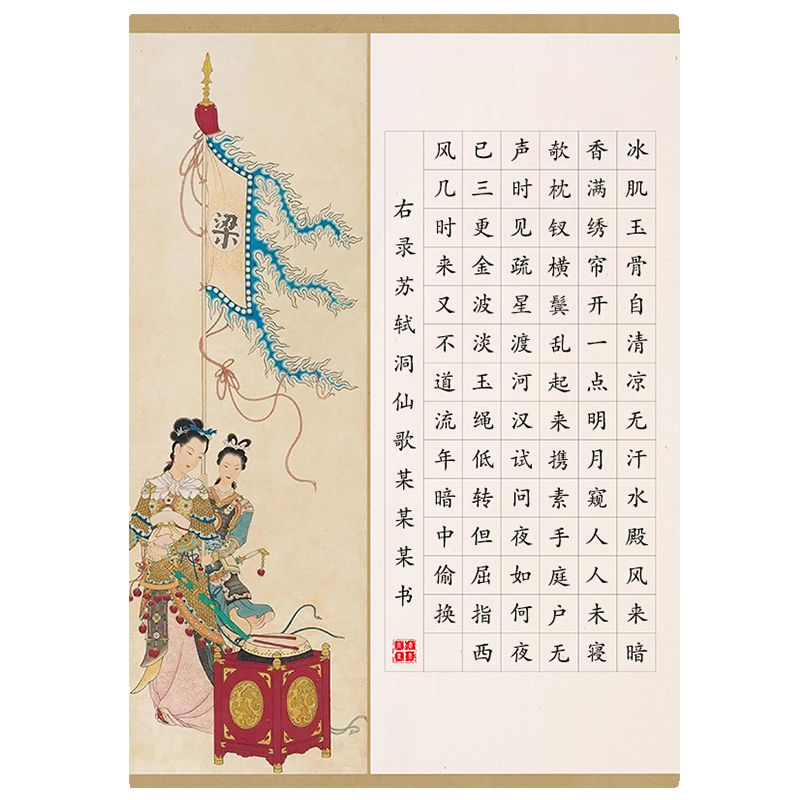 冰肌玉骨自清凉无汗水殿风来暗
香满绣帘开一点明月窥人人未寝
欹枕钗横鬓乱起来携素手庭户无
声时见疏星渡河汉试问夜如何夜
已三更金波淡玉绳低转但屈指西
风几时来又不道流年暗中偷换
右录苏轼洞仙歌某某某书
梁